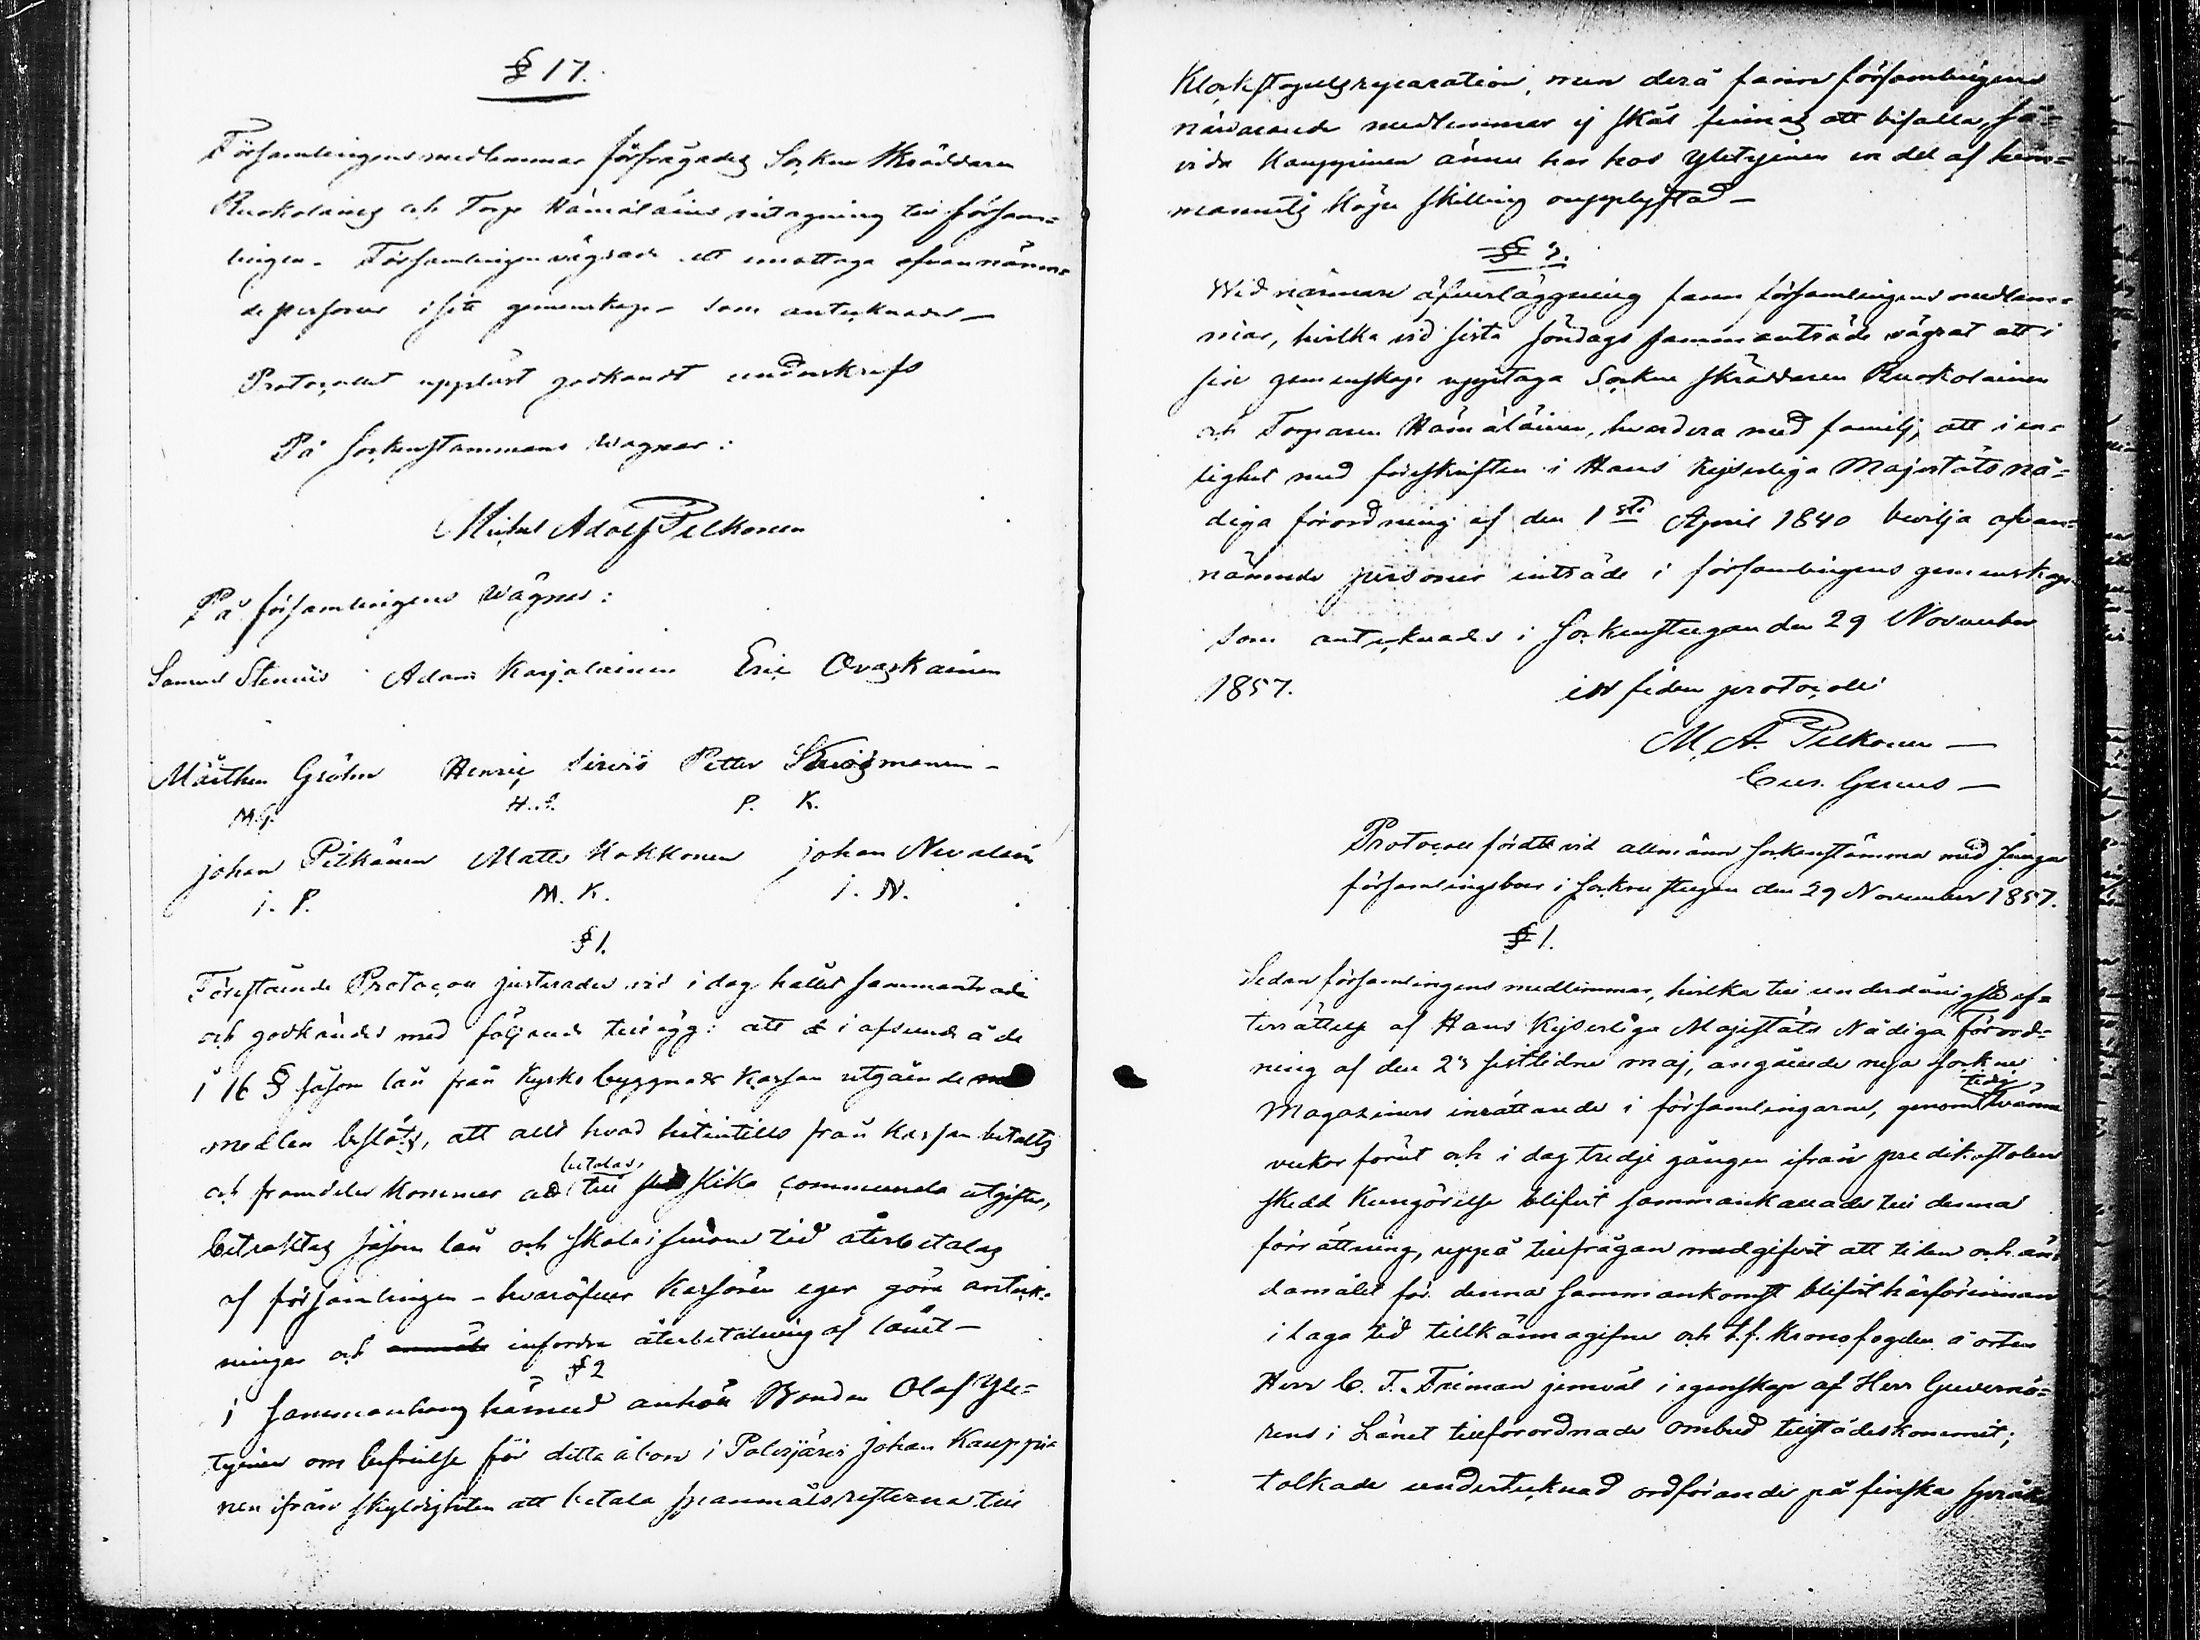 § 17.
Församlingens medlemmar förfrågades Sockne Skräddaren
Ruokolaines och Torp. Hämäläines intagning till försam-
lingen. Församlingen vägrade att emottaga ofvannämn-
de personer i sitt gemenskap - som antecknades -
Protocollet uppläst godkändt underskrefs
På Sockenstämmans wägnar:
Michel Adolf Pelkonen
På församlingens wägnar:
Samuel Stenius Adam Karjalainen Eric Ovaskainen
Mårthen Gröhn Henric Sirviö Petter
M.G. H.S. P. K.
johan Pitkänen Matts Kokkonen johan Nevalain
i. P. M. K. i. N.
§ 1.
Förestående Protocoll justerades vid i dag hållet sammanträde
och godkändes med följande tillägg: att i afseende å de
i 16 § såsom lån från Kyrko byggnads Kassan utgående
medlen beslöts, att allt hvad hitintills från Kassan betalts
och framdeles kommer att betalas, till slika communala utgifter,
betraktas såsom lån och skola i sinom tid återbetalas
af församlingen - hvaröfver Kassören eger göra anteck-
ningar och infordra återbetalning af lånet -
§ 2
i Sammanhang härmed anhöll Bonden Olof Yle-
tyinen om befrielse för ditto åboen i Palojärvi johan Kauppi-
nen ifrån skyldigheten att betala spanmålsresterna till
Klockstapelsreparation, men derå fann församlingens
närvarande medlemmar ej skäl finnas att bifalla, så-
vida Kauppinen ännu har hos Yletyinen en del af hem-
manets Köpe skilling oupplyftad -
§ 3.
Wid närmare öfverläggning fann församlingens medlem-
mar, hvilka vid sista söndags sammanträde vägrat att i
sin gemenskap upptaga Sockne skräddaren Ruokolainen
och Torparen Hämäläinen, hvardera med familj, att i en-
lighet med föreskriften i Hans Kejserliga Majestäts nå-
diga förordning af den 1sta April 1840 bevilja ofvan-
nämnde personer inträde i församlingens gemenskap
som antecknades i Sockenstugan den 29 November
1857. in fidem protocolli
M. A. Pelkonen -
Protocoll fördt vid allmänn sockenstämma med Juuga
församlingsboer i Sockne stugan den 29 November 1857.
§ 1.
Sedan församlingens medlemmar, hvilka till underdånigste ef-
terrättelse af Hans Kejserliga Majestäts Nådiga Förord-
ning af den 23 sistlidne maj, angående nya Sockne
Magaziners inrättande i församlingarne, genom tvänne
veckor förut och i dag tredje gången ifrån predikstolen
skedd Kungörelse blifvit sammankallade till denna
förrättning, uppå tillfrågan medgifvit att tiden och än-
damålet för denna Sammankomst blifvit härförinnan
i laga tid tillkännagifne och t.f. Kronofogden å orten
Herr C. F. Friman jemväl i egenskap af Herr Guvernö-
rens i Länet tillförordnade ombud tillstädeskommit;
tolkade undertecknad ordförande på finska språket